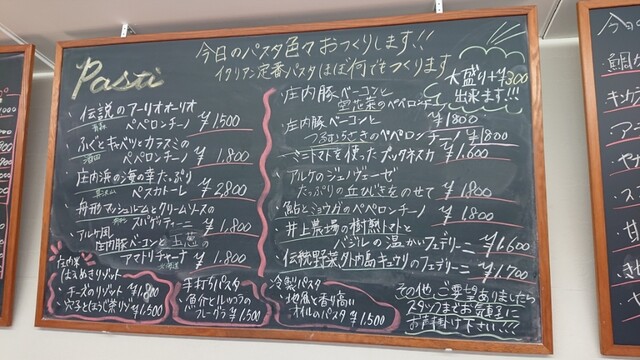 今日のパスタ色々おつくりします!!
イタリアン定番パスタほぼ何でもつくります
大盛り+¥300
出来ます!!!
Pasta
・伝説のアーリオオーリオ
ペペロンチーノ ¥1500
・ふぐとキャベツとカラスミの
ペペロンチーノ ¥1.800
・庄内浜の海の幸たっぷり
ペスカトーレ ¥2800
・舟形マッシュルームとクリームソースの
スパゲティーニ ¥1.800
・アルケ風
庄内豚ベーコンと玉葱の
アマトリチャーナ ¥1.800
庄内米
はえぬきリゾット
・チーズのリゾット ¥1,800
・穴子とほうじ茶リゾ ¥1,500
手打ちパスタ
・魚介と
¥1,500
・庄内豚ベーコンと
ペペロンチーノ
¥1800
・庄内豚ベーコンと
つるむらさきのペペロンチーノ ¥1800
・ミニトマトを使ったプッタネスカ ¥1.600
・アルケのジェノヴェーゼ
たっぷりの丘ひじきをのせて ¥1800
・鮎とミョウガのペペロンチーノ ¥1800
・井上農場の樹熟トマトと
バジルの温かいフェデリーニ ¥1.600
・伝統野菜、外内島キュウリのフェデリーニ ¥1.700
冷製パスタ
・地魚と香り高い
オイルのパスタ ¥1.500
その他、ご要望ありましたら
スタッフまでお気軽に
お声掛け下さい!!!